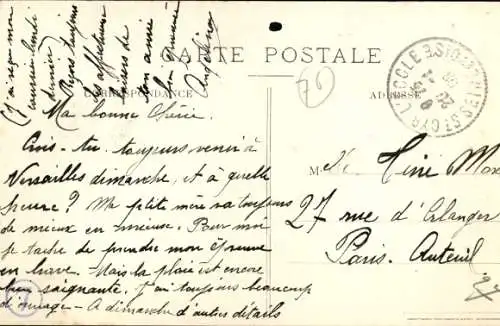 CARTE POSTALE
CORRESPONDANCE
ADRESSE
J'ai reçu mon
courrier lundi
dernier
Reçois toujours
les affectueux
baisers de
ton amie
bien
70
Ma bonne Chérie.
Crois-tu toujours venir à
Versailles dimanche, et à quelle
heure? Ma petite mère va toujours
de mieux en mieux. Pour moi
je tache de prendre mon épreuve
en brave. Mais la plaie est encore
bien saignante. J'ai toujours beaucoup
d'ouvrage - A dimanche d'autres détails
M
27 rue d'Erlanger
Paris. Auteuil
ST CYR L'ECOLE